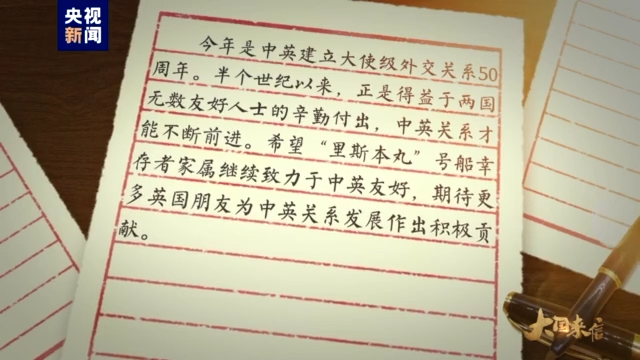 央视
新闻
今年是中英建立大使级外交关系50
周年。半个世纪以来，正是得益于两国
无数友好人士的辛勤付出，中英关系才
能不断前进。希望“里斯本丸”号船幸
存者家属继续致力于中英友好，期待更
多英国朋友为中英关系发展作出积极贡
献。
大国来信